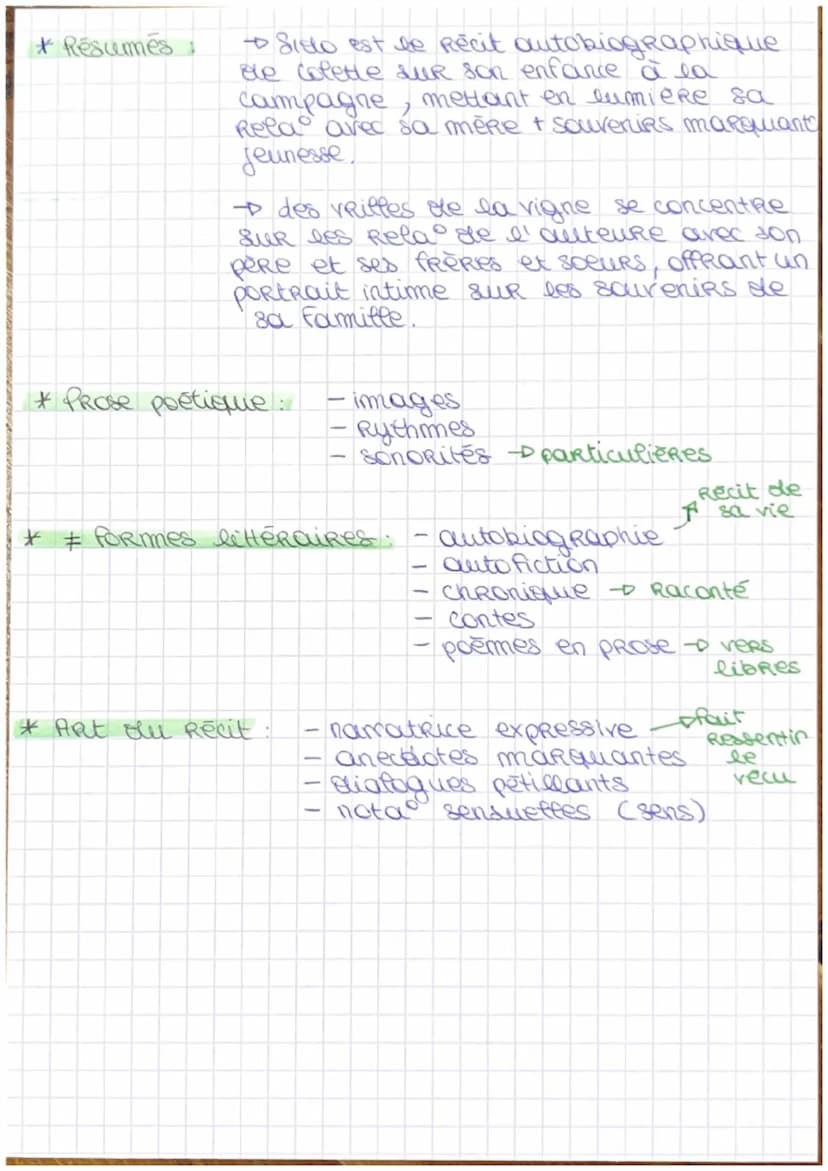 * Résumés : → Sido est le récit autobiographique
de Colette sur son enfance à la
campagne, mettant en lumière sa
rela° avec sa mère + souvenirs marquant
jeunesse.
→ des vrilles de la vigne se concentre
sur les rela° de l'auteure avec son
père et ses frères et soeurs, offrant un
portrait intime sur les souvenirs de
sa famille.
* Prose poétique : - images
- rythmes
- sonorités → particulières
récit de
sa vie
* ≠ formes littéraires : - autobiographie
- autofiction
- chronique → raconté
- contes
- poèmes en prose → vers
libres
* Art du récit : - narratrice expressive → fait
ressentir
- anecdotes marquantes le
- dialogues pétillants vécu
- nota° sensuelles (sens)